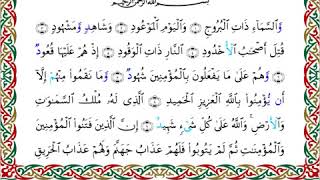 بِسْمِ ٱللَّهِ ٱلرَّحْمَٰنِ ٱلرَّحِيمِ
وَٱلسَّمَآءِ ذَاتِ ٱلْبُرُوجِ ١ وَٱلْيَوْمِ ٱلْمَوْعُودِ ٢ وَشَاهِدٍ وَمَشْهُودٍ ٣
قُتِلَ أَصْحَٰبُ ٱلْأُخْدُودِ ٤ ٱلنَّارِ ذَاتِ ٱلْوَقُودِ ٥ إِذْ هُمْ عَلَيْهَا قُعُودٌ ٦
وَهُمْ عَلَىٰ مَا يَفْعَلُونَ بِٱلْمُؤْمِنِينَ شُهُودٌ ٧ وَمَا نَقَمُوا۟ مِنْهُمْ إِلَّآ
أَن يُؤْمِنُوا۟ بِٱللَّهِ ٱلْعَزِيزِ ٱلْحَمِيدِ ٨ ٱلَّذِى لَهُۥ مُلْكُ ٱلسَّمَٰوَٰتِ
وَٱلْأَرْضِ وَٱللَّهُ عَلَىٰ كُلِّ شَىْءٍ شَهِيدٌ ٩ إِنَّ ٱلَّذِينَ فَتَنُوا۟ ٱلْمُؤْمِنِينَ
وَٱلْمُؤْمِنَٰتِ ثُمَّ لَمْ يَتُوبُوا۟ فَلَهُمْ عَذَابُ جَهَنَّمَ وَلَهُمْ عَذَابُ ٱلْحَرِيقِ